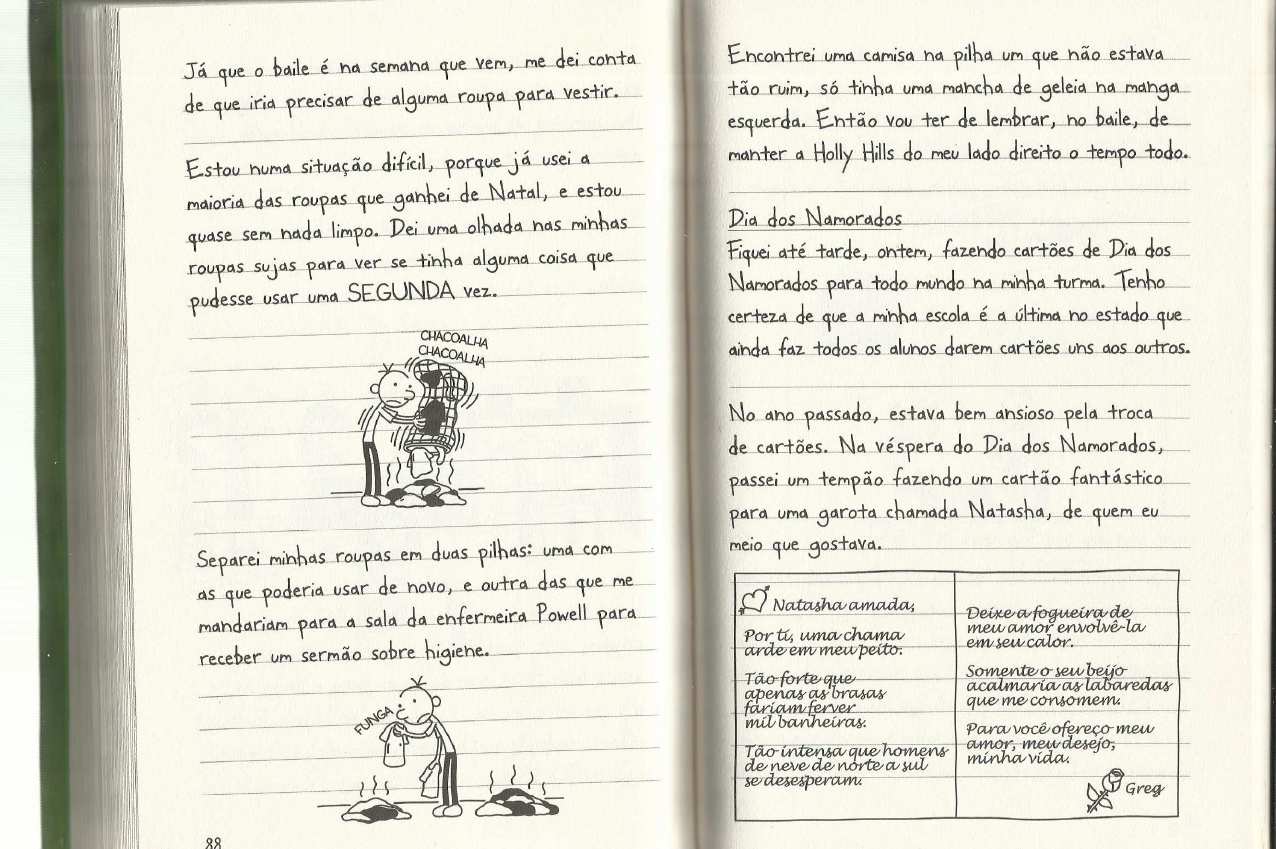 Já que o baile é na semana que vem, me dei conta
de que iria precisar de alguma roupa para vestir.
Estou numa situação difícil, porque já usei a
maioria das roupas que ganhei de Natal, e estou
quase sem nada limpo. Dei uma olhada nas minhas
roupas sujas para ver se tinha alguma coisa que
pudesse usar uma SEGUNDA vez.
CHACOALHA
CHACOALHA
Separei minhas roupas em duas pilhas: uma com
as que poderia usar de novo, e outra das que me
mandariam para a sala da enfermeira Powell para
receber um sermão sobre higiene.
FUNGA
88
Encontrei uma camisa na pilha um que não estava
tão ruim, só tinha uma mancha de geleia na manga
esquerda. Então vou ter de lembrar, no baile, de
manter a Holly Hills do meu lado direito o tempo todo.
Dia dos Namorados
Fiquei até tarde, ontem, fazendo cartões de Dia dos
Namorados para todo mundo na minha turma. Tenho
certeza de que a minha escola é a última no estado que
ainda faz todos os alunos darem cartões uns aos outros.
No ano passado, estava bem ansioso pela troca
de cartões. Na véspera do Dia dos Namorados,
passei um tempão fazendo um cartão fantástico
para uma garota chamada Natasha, de quem eu
meio que gostava.
Natasha amada,
Por ti, uma chama
arde em meu peito.
Tão forte que
apenas as brasas
fariam ferver
mil banheiras.
Tão intensa que homens
de neve de norte a sul
se desesperam.
Deixe a fogueira de
meu amor envolvê-la
em seu calor.
Somente o seu beijo
acalmaria as labaredas
que me consomem.
Para você ofereço meu
amor, meu desejo,
minha vida.
Greg